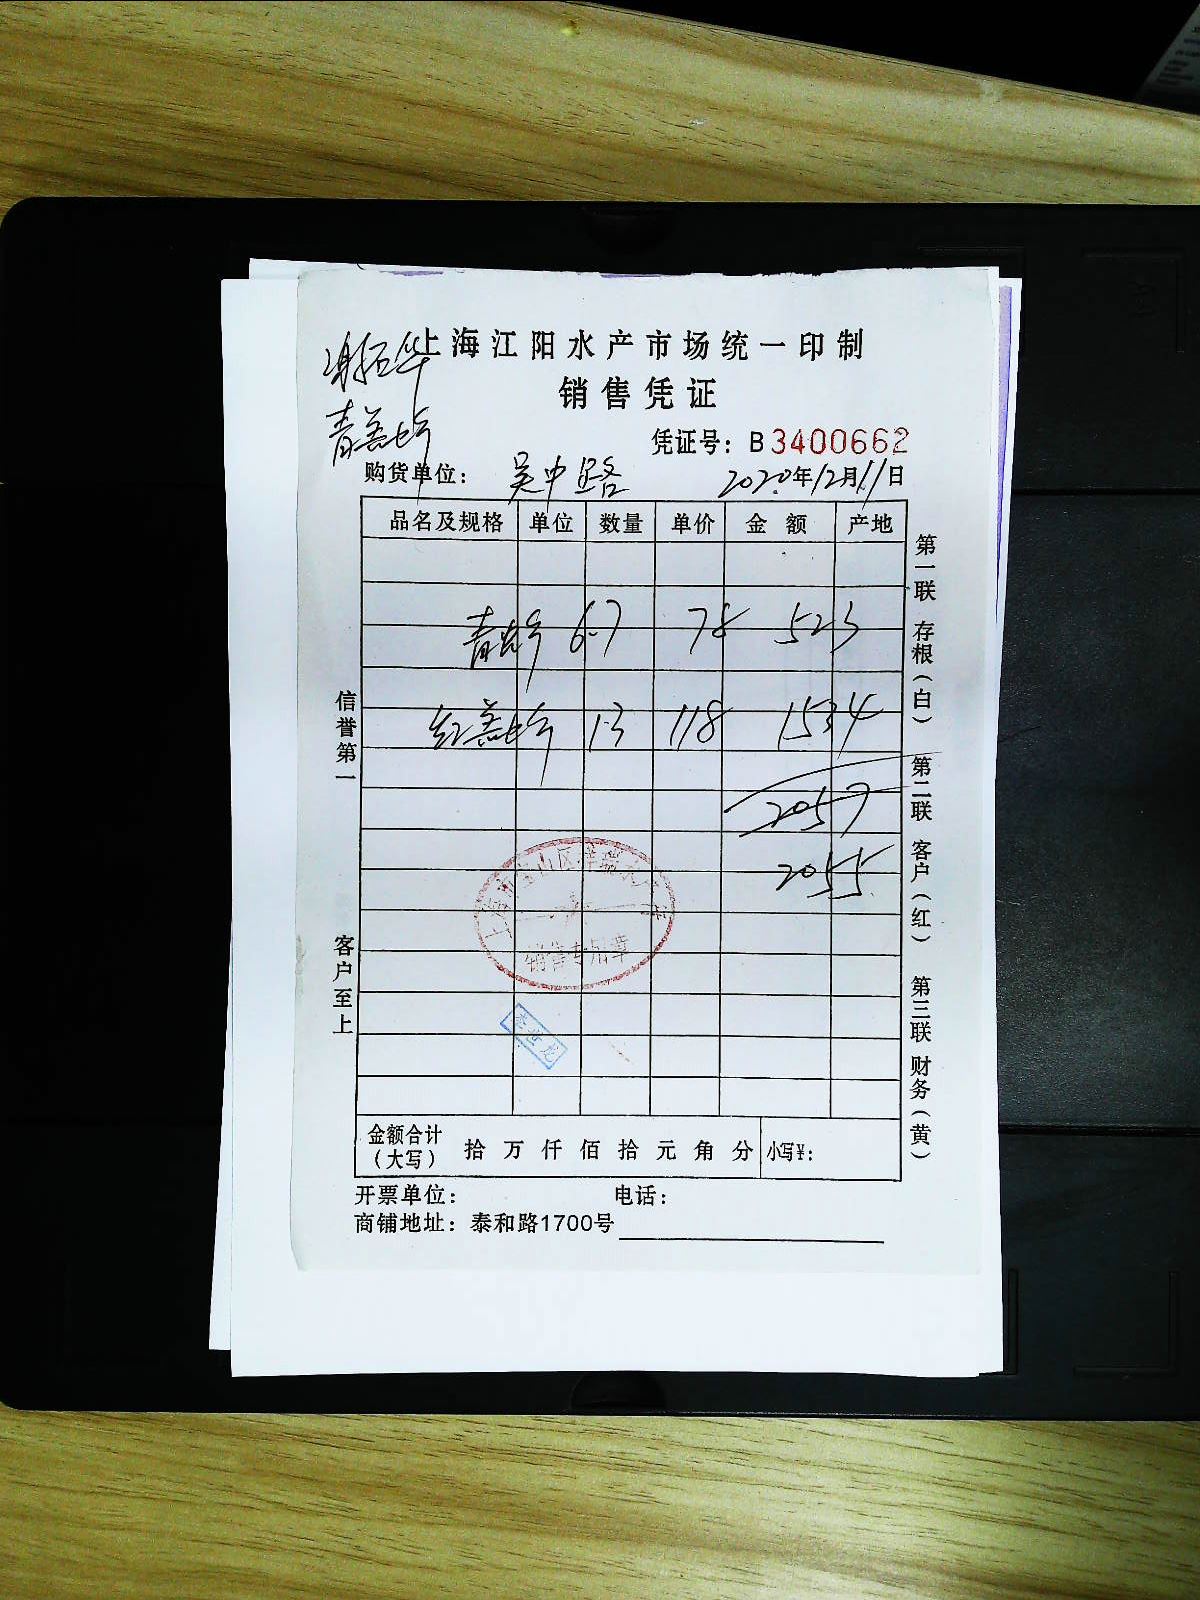 上海江阳水产市场统一印制
销售凭证
凭证号：B3400662
购货单位： 吴中路 2020年12月11日
品名及规格 单位 数量 单价 金额 产地
6.7 78 523
13 118 1534
2057
2055
信誉第一
客户至上
第一联 存根（白）
第二联 客户（红）
第三联 财务（黄）
销售专用章
金额合计（大写） 拾 万 仟 佰 拾 元 角 分 小写¥：
开票单位： 电话：
商铺地址：泰和路1700号